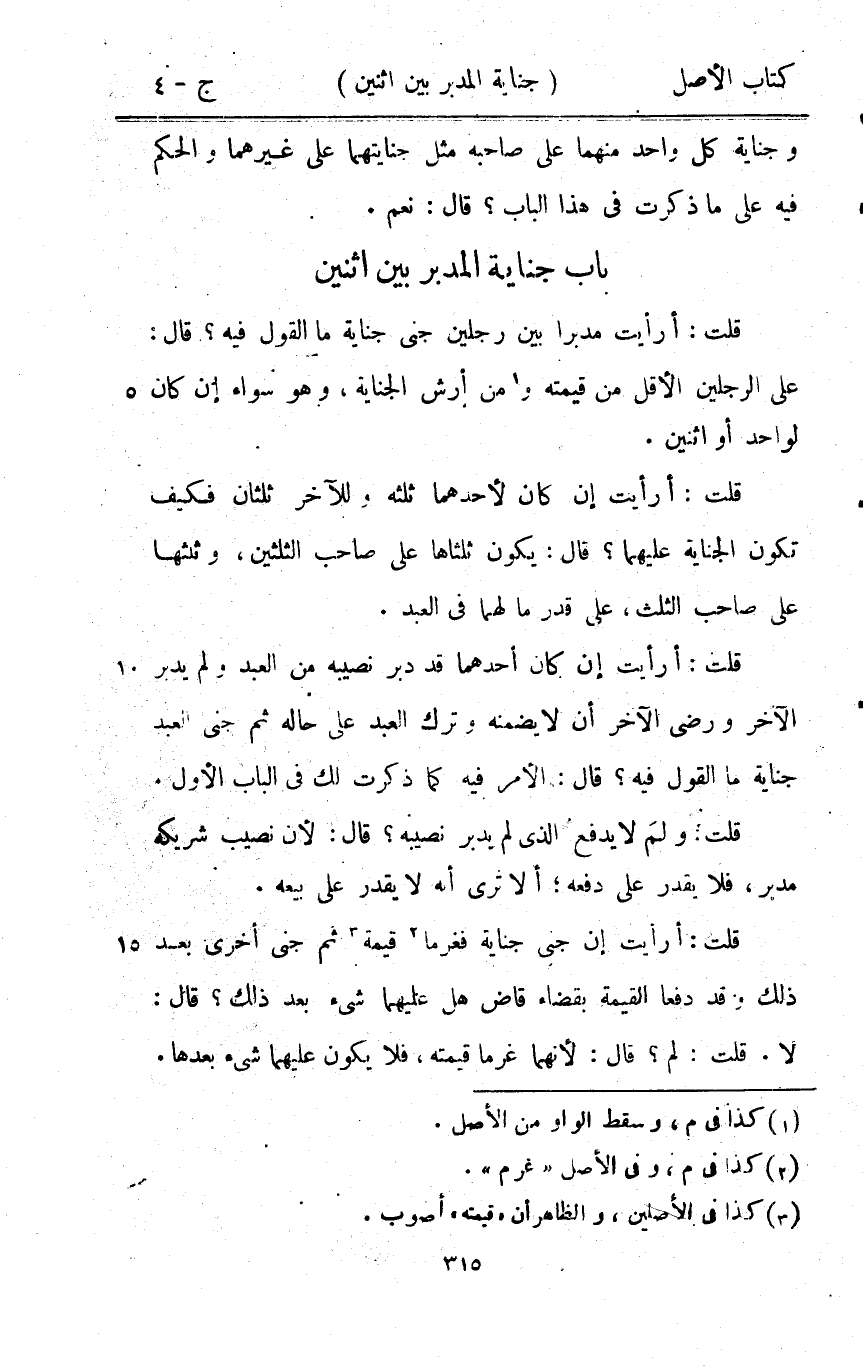 كتاب الأصل ( جناية المدبر بين اثنين ) ج - ٤
و جناية كل واحد منهما على صاحبه مثل جنايتهما على غيرهما و الحكم
فيه على ما ذكرت فى هذا الباب ؟ قال : نعم .
باب جناية المدبر بين اثنين
قلت : أ رأيت مدبرا بين رجلين جنى جناية ما القول فيه ؟ قال :
على الرجلين الأقل من قيمته و١ من أرش الجناية ، و هو سواء إن كان ٥
لواحد أو اثنين .
قلت : أ رأيت إن كان لأحدهما ثلثه و للآخر ثلثان فكيف
تكون الجناية عليهما ؟ قال : يكون ثلثاها على صاحب الثلثين ، و ثلثها
على صاحب الثلث ، على قدر ما لهما فى العبد .
قلت : أ رأيت إن كان أحدهما قد دبر نصيبه من العبد و لم يدبر ١٠
الآخر و رضى الآخر أن لا يضمنه و ترك العبد على حاله ثم جنى العبد
جناية ما القول فيه ؟ قال : الأمر فيه كما ذكرت لك فى الباب الأول .
قلت : و لمَ لا يدفع الذى لم يدبر نصيبه ؟ قال : لأن نصيب شريكه
مدبر ، فلا يقدر على دفعه ؛ ألا ترى أنه لا يقدر على بيعه .
قلت : أ رأيت إن جنى جناية فغرما٢ قيمة٣ ثم جنى أخرى بعد ١٥
ذلك و قد دفعا القيمة بقضاء قاض هل عليهما شىء بعد ذلك ؟ قال :
لا . قلت : لم ؟ قال : لأنهما غرما قيمته ، فلا يكون عليهما شىء بعدها .
(١) كذا فى م ، و سقط الواو من الأصل .
(٢) كذا فى م ، و فى الأصل « غرم » .
(٣) كذا فى الأصلين ، و الظاهر أن « قيمته » أصوب .
٣١٥